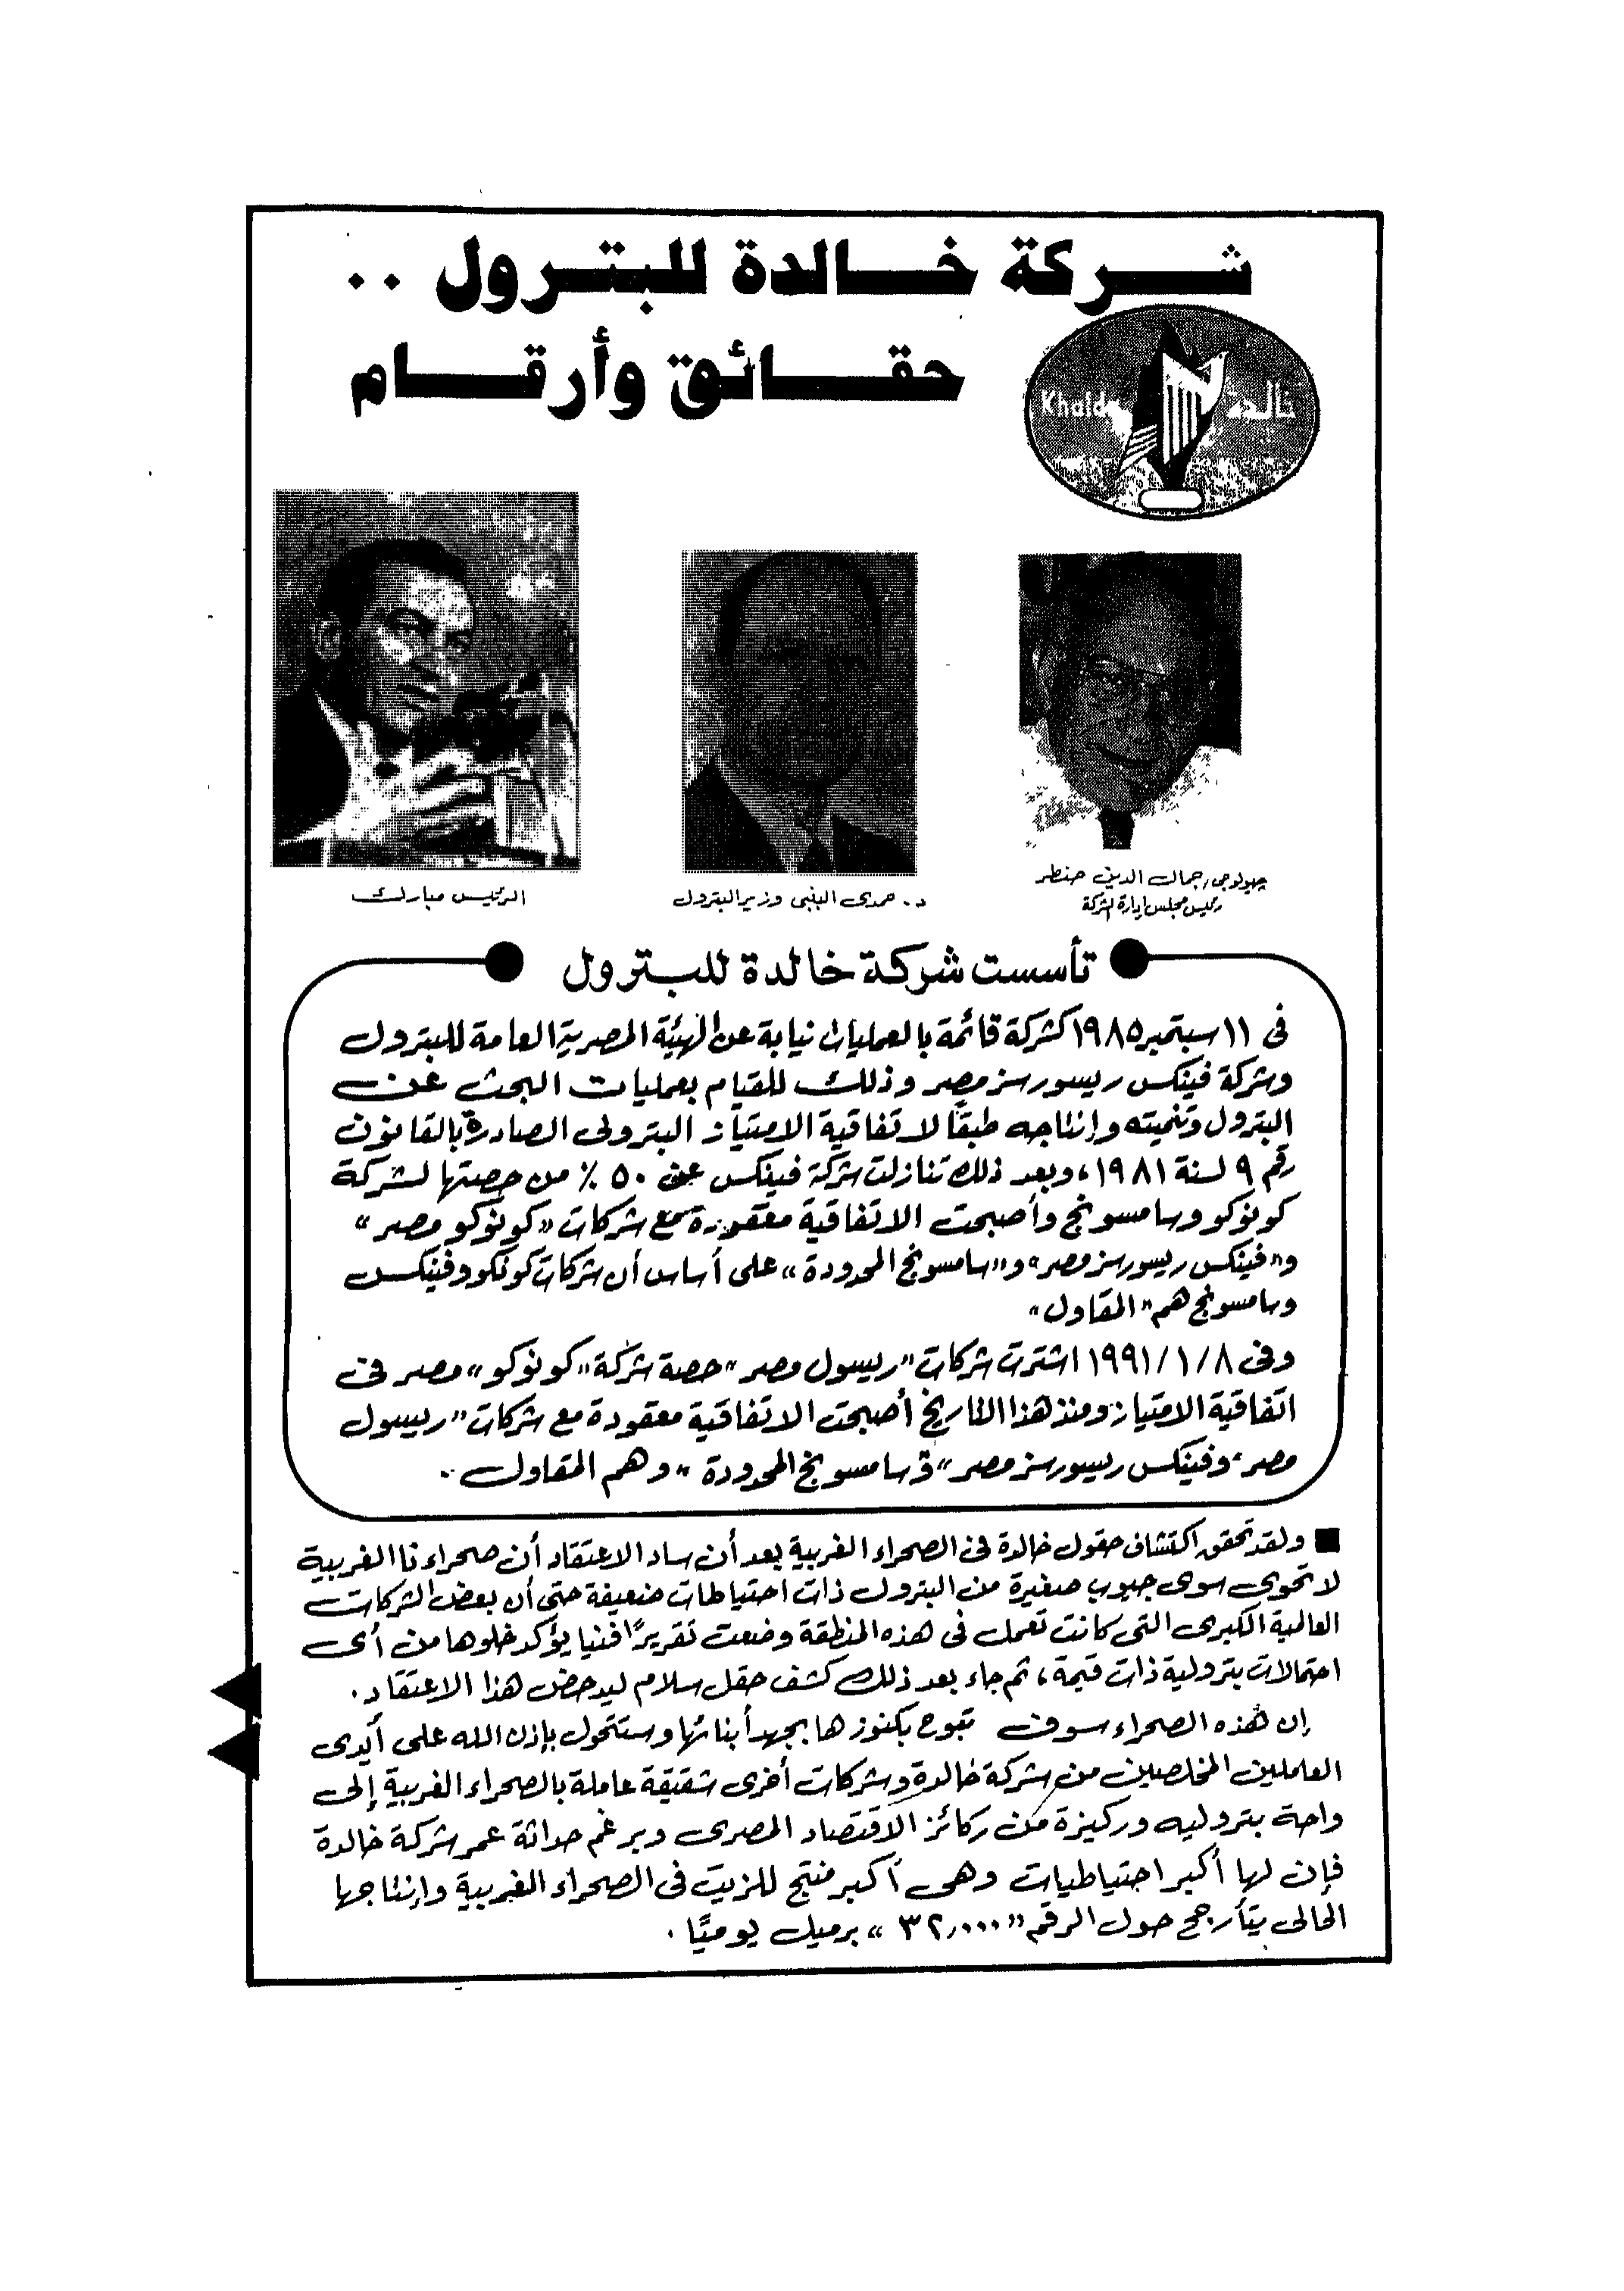 شركة خالدة للبترول ..
حقائق وأرقام
Khalda خالده
جيولوجى/جمال الدين حنطر
رئيس مجلس إدارة الشركة
د. حمدى البنبى وزير البترول
الرئيس مبارك
تأسست شركة خالدة للبترول
فى ١١ سبتمبر ١٩٨٥ كشركة قائمة بالعمليات نيابة عن الهيئة المصرية العامة للبترول
وشركة فينكس ريسورسز مصر وذلك للقيام بعمليات البحث عن
البترول وتنميته وإنتاجه طبقًا لاتفاقية الامتياز البترولى الصادرة بالقانون
رقم ٩ لسنة ١٩٨١، وبعد ذلك تنازلت شركة فينكس عن ٥٠ ٪ من حصتها لشركة
كونوكو وسامسونج وأصبحت الاتفاقية معقودة مع شركات «كونوكو مصر»
و«فينكس ريسورسز مصر» و«سامسونج المحدودة» على أساس أن شركات كونكو وفينكس
وسامسونج هم «المقاول»
وفى ١٩٩١/١/٨ اشترت شركات «ريبسول مصر» حصة شركة «كونوكو» مصر فى
اتفاقية الامتياز ومنذ هذا التاريخ أصبحت الاتفاقية معقودة مع شركات «ريبسول
مصر، وفينكس ريسورسز مصر» و سامسونج المحدودة » وهم المقاول ..
■ ولقد تحقق اكتشاف حقول خالدة فى الصحراء الغربية بعد أن ساد الاعتقاد أن صحراءنا الغربية
لا تحوى سوى جيوب صغيرة من البترول ذات احتياطات ضعيفة حتى أن بعض الشركات
العالمية الكبرى التى كانت تعمل فى هذه المنطقة وضعت تقريرًا فنيا يؤكد خلوها من أى
احتمالات بترولية ذات قيمة، ثم جاء بعد ذلك كشف حقل سلام ليدحض هذا الاعتقاد.
إن هذه الصحراء سوف تبوح بكنوزها بجهد أبنائها وستتحول بإذن الله على أيدى
العاملين المخلصين من شركة خالدة وشركات أخرى شقيقة عاملة بالصحراء الغربية إلى
واحة بتروليه وركيزة من ركائز الاقتصاد المصرى وبرغم حداثة عمر شركة خالدة
فإن لها أكبر احتياطيات وهى أكبر منتج للزيت فى الصحراء الغربية وإنتاجها
الحالى يتأرجح حول الرقم «٣٢,٠٠٠» برميل يوميًا .